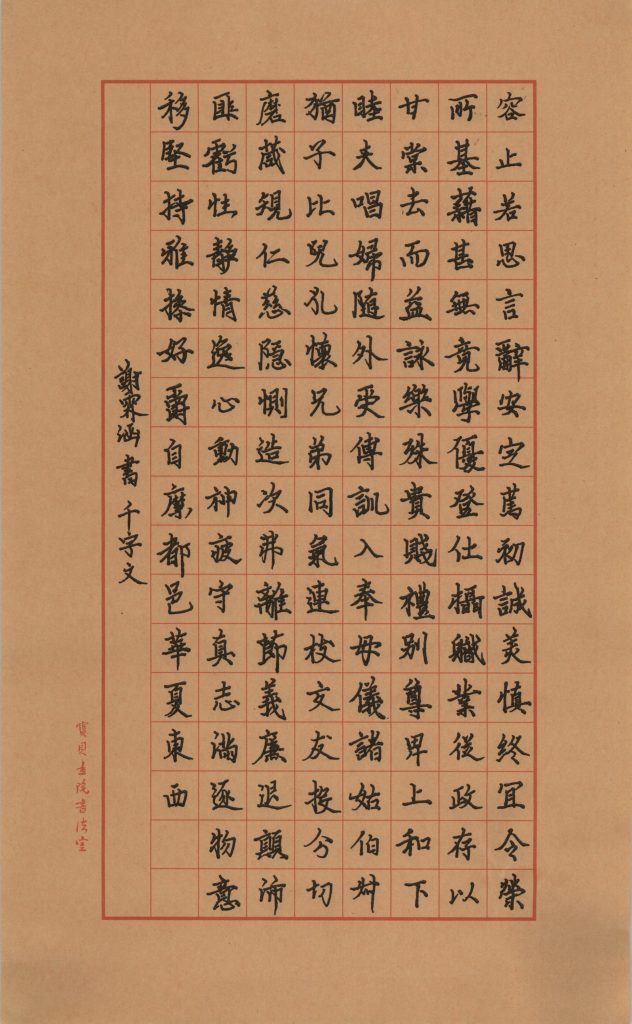 容止若思言辭安定篤初誠美慎終宜令榮
所基藉甚無竟學優登仕攝職業從政存以
甘棠去而益詠樂殊貴賤禮別尊卑上和下
睦夫唱婦隨外受傅訓入奉母儀諸姑伯叔
猶子比兒孔懷兄弟同氣連枝交友投分切
磨箴規仁慈隱惻造次弗離節義廉退顛沛
匪虧性靜情逸心動神疲守真志滿逐物意
移堅持雅操好爵自縻都邑華夏東西
謝霖涵書千字文
寶貝畫院書法室